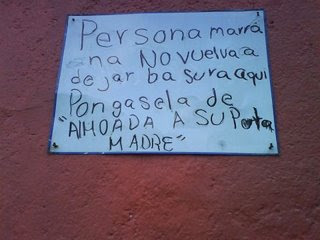 Persona marrá
na NO vuelva a
dejar basura aqui
Pongasela de
"AlMOADA A SU Puta
MADRE"